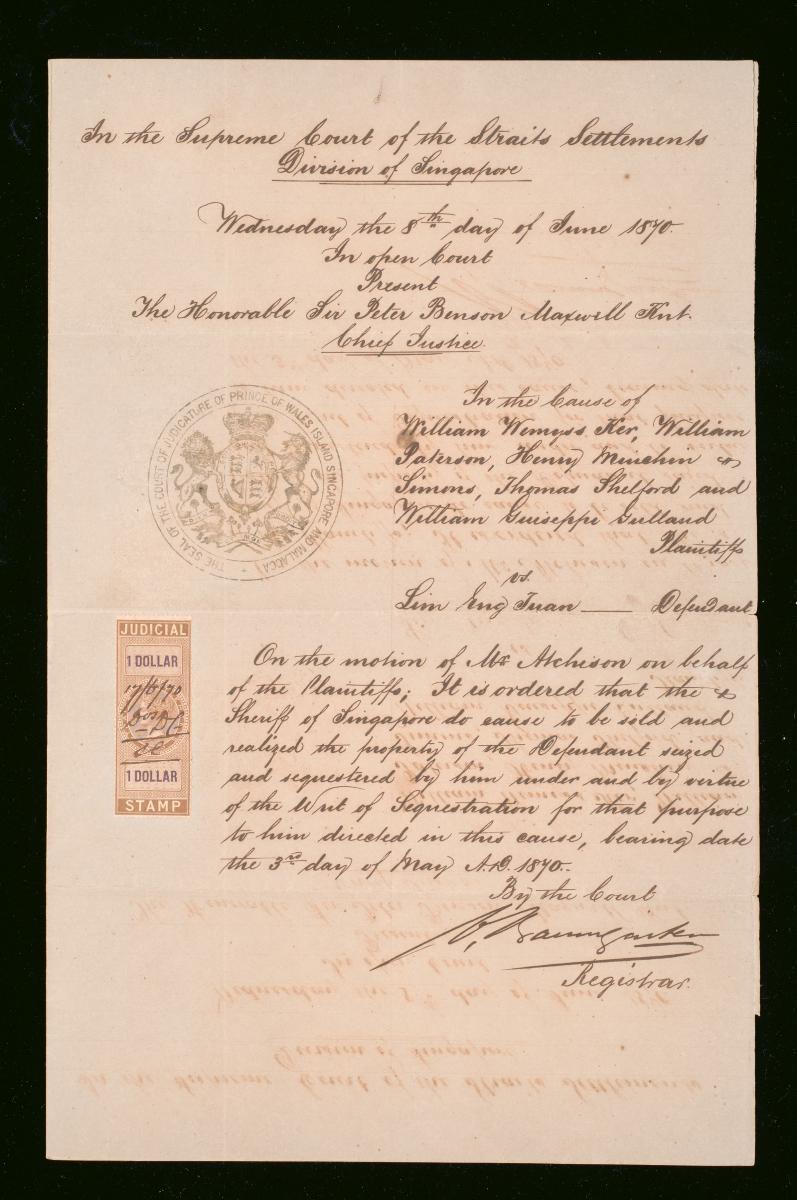 In the Supreme Court of the Straits Settlements
Division of Singapore
Wednesday the 8th day of June 1870.
In open Court
Present
The Honorable Sir Peter Benson Maxwell Knt.
Chief Justice.
THE SEAL OF THE COURT OF JUDICATURE OF PRINCE OF WALES ISLAND SINGAPORE AND MALACCA
In the Cause of
William Wemyss Ker, William
Paterson, Henry Minchin
Simons, Thomas Shelford and
William Guiseppi Gulland
Plaintiffs
vs.
Lim Eng Tuan — Defendant
JUDICIAL
1 DOLLAR
1 DOLLAR
STAMP
On the motion of Mr Atchison on behalf
of the Plaintiffs; It is ordered that the
Sheriff of Singapore do cause to be sold and
realized the property of the Defendant seized
and sequestered by him under and by virtue
of the Writ of Sequestration for that purpose
to him directed in this cause, bearing date
the 3rd day of May A.D. 1870.
By the Court
Baumgarten
Registrar.